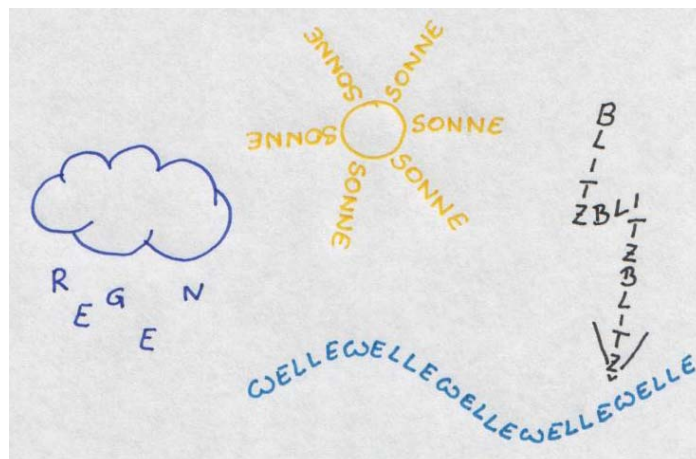 SONNE
SONNE
SONNE
SONNE
SONNE
SONNE
BLITZBLITZBLITZ
REGEN
WELLEWELLEWELLEWELLEWELLE